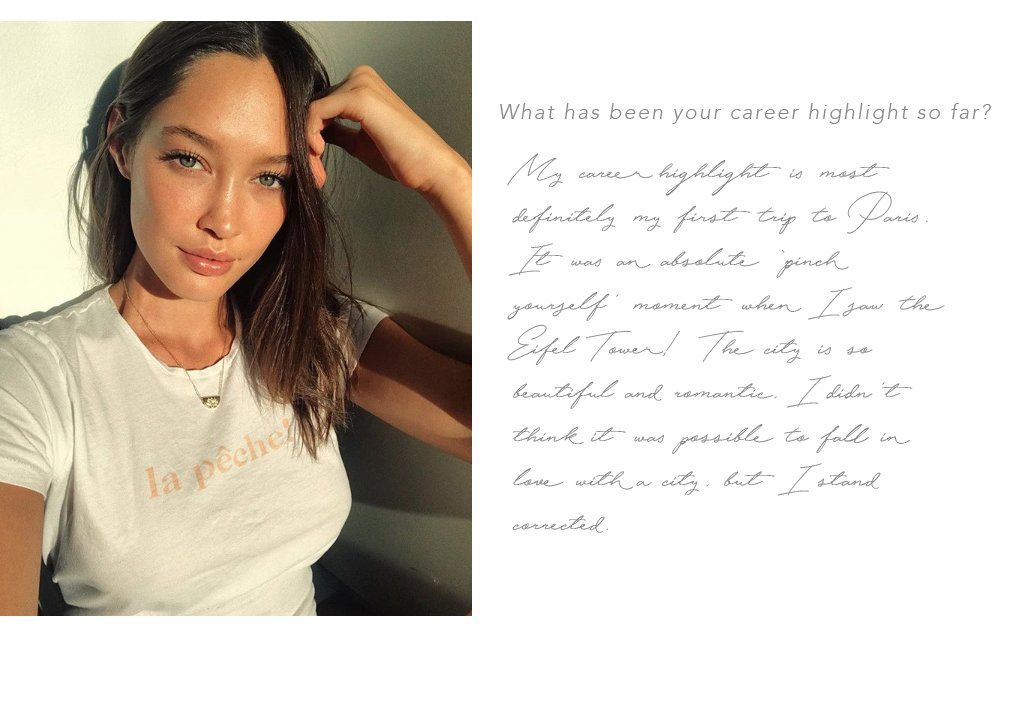 la pêche!
What has been your career highlight so far?
My career highlight is most
definitely my first trip to Paris.
It was an absolute 'pinch
yourself' moment when I saw the
Eifel Tower! The city is so
beautiful and romantic. I didn't
think it was possible to fall in
love with a city, but I stand
corrected.